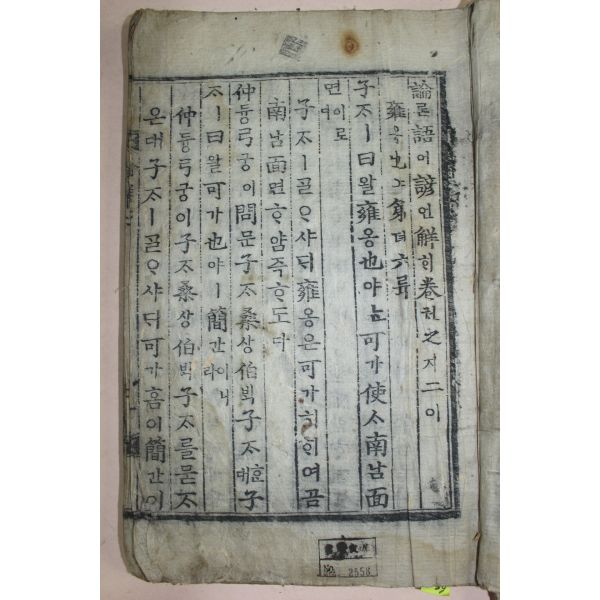 論론語어諺언解ᄒᆡ卷권之지二이
雍옹也야第뎨六륙
子ᄌᆞㅣ曰왈雍옹也야ᄂᆞᆫ可가使ᄉᆞ南남面
면이로다
子ᄌᆞㅣᄀᆞᆯᄋᆞ샤ᄃᆡ雍옹은可가히ᄒᆞ여곰
南남面면ᄒᆞ얌즉ᄒᆞ도다
仲듕弓궁이問문子ᄌᆞ桑상伯ᄇᆡᆨ子ᄌᆞᄒᆞᆫ대子
ᄌᆞㅣ曰왈可가也야ㅣ簡간이니라
仲듕弓궁이子ᄌᆞ桑상伯ᄇᆡᆨ子ᄌᆞ를묻ᄌᆞ
온대子ᄌᆞㅣᄀᆞᆯᄋᆞ샤ᄃᆡ可가홈이簡간이
No. 2558